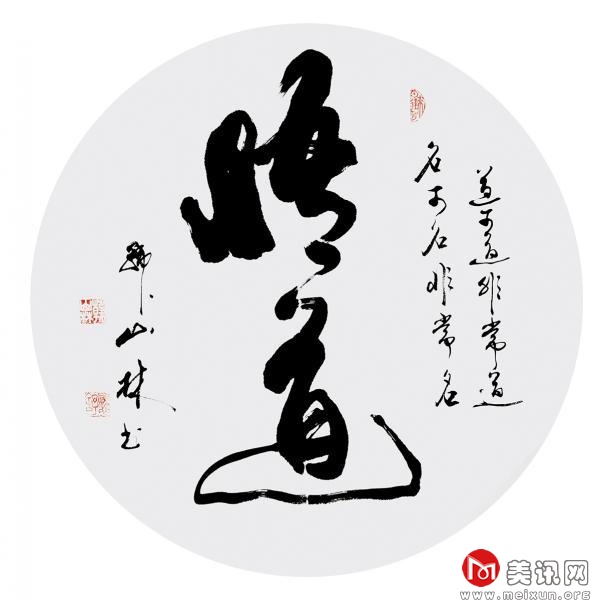 道可道非常道
名可名非常名
悟道
山林书
美讯网
www.meixun.org